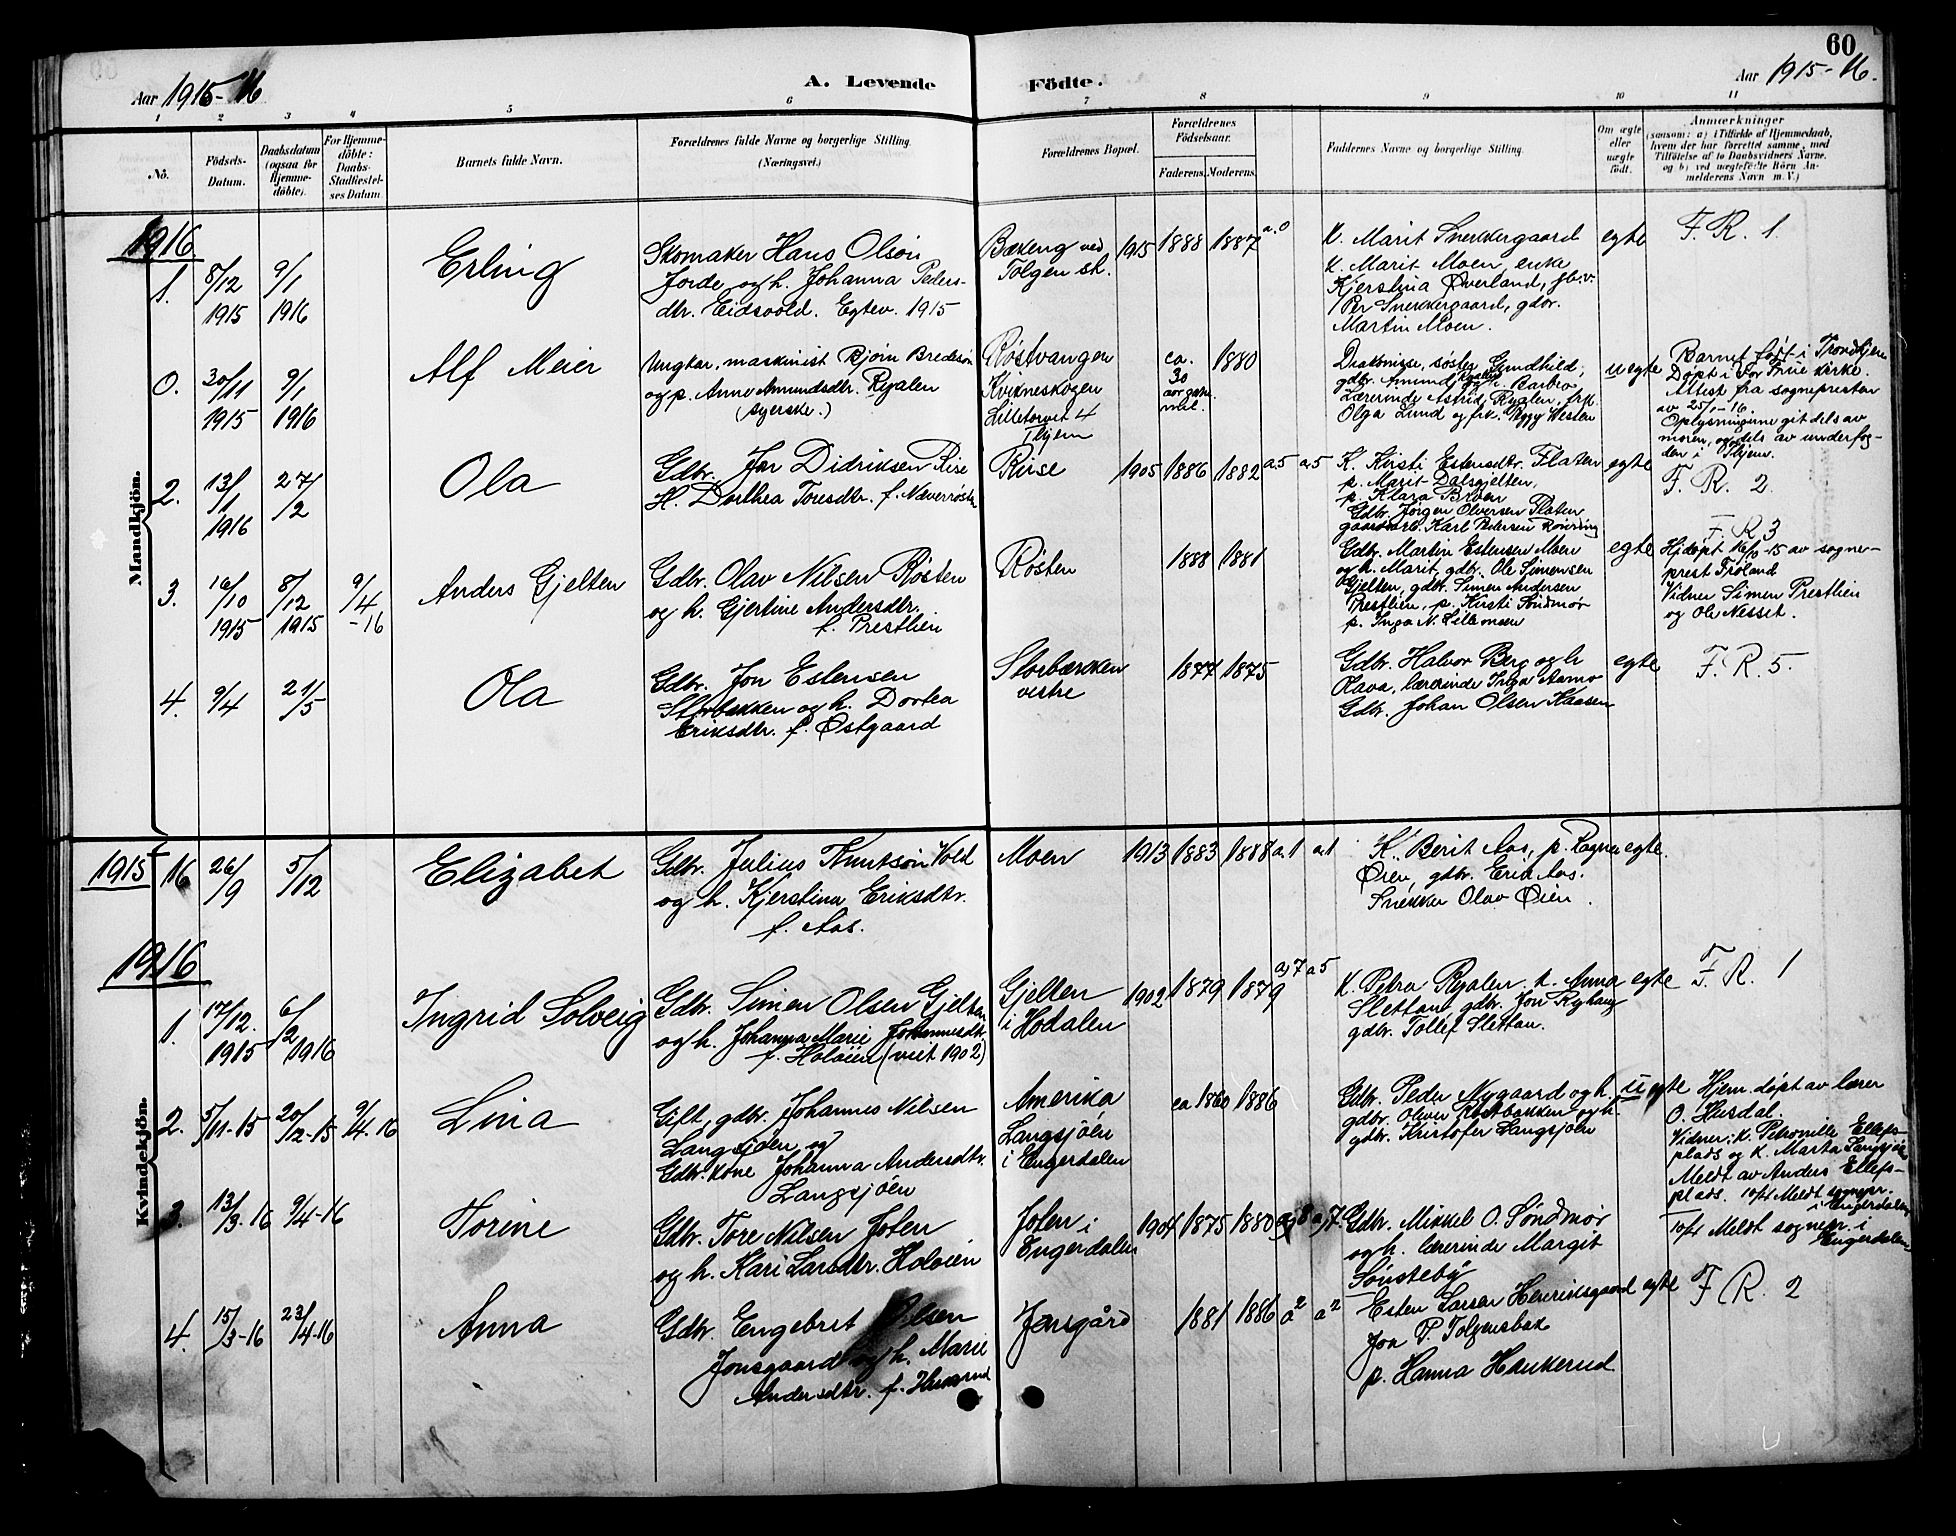 60
Aar 1915-16
A. Levende Födte.
Aar 1915-16.
1 2 3 4 5 6 7 8 9 10 11
No.
Födsels-Datum.
Daabsdatum (ogsaa for Hjemme-döbte).
For Hjemme-döbte: Daabs-Stadfæstel-ses Datum
Barnets fulde Navn.
Forældrenes fulde Navne og borgerlige Stilling.
(Næringsvei.)
Forældrenes Bopæl.
Forældrenes Födselsaar.
Faderens. Moderens.
Faddernes Navne og borgerlige Stilling.
Om ægte eller uægte födt.
Anmærkninger
(saasom: a) i Tilfælde af Hjemmedaab,
hvem der har forrettet samme, med
Tilföielse af to Daabsvidners Navne.
og b) ved uægtefödte Börn An-
melderens Navn m. V.)
Mandkjön.
1916
1. 8/12 1915 9/1 1916
Erling
Skomaker Hans Olsøn
Jorde og h. Johanna Peders-
dtr. Eidsvold. Egtev. 1915
Bækeng ved
Tolgen st.
1915 1888 1887 a. 0
K. Marit Snekkergaard
K. Marit Moen, enke
Kjerstina Øverland,
Per Snekkergaard, gdbr.
Martin Moen.
egte
F. R. 1.
0. 30/11 1915 9/1 1916
Alf Meier
Ungkar, maskinist Bjørn Bredesøn
og p. Anna Amundsdtr. Ryalen
(syerske.)
Røstvangen
Kvikneskogen
Lilletorvet 4
Thjem
ca. 30 aar gammel. 1880
Diakonisse, søster Gundhild,
gdbr. Amund Ryalen og h. Barbro
Lærerinde Astrid Ryalen, frk.
Olga Lund og frk. Peggy Westen
uegte
Barnet født i Trondhjem
Døpt i Vor Frue kirke.
Attest fra sognepresten
av 25/1-16.
Oplysningerne git dels av
moren, og dels av underfog-
den i Thjem.
2. 13/1 1916 27/2
Ola
Gdbr. Jon Didriksen Riise
H. Dorthea Toresdtr. f. Næverrøsten
Riise
1905 1886 1882 a.5 a.5
K. Kirsti Estensdtr. Flaten
p. Marit Dalsgjelten,
p. Klara Broen
Gdbr. Jørgen Olversen Flaten
Karl Pedersen
egte
F. R. 2.
3. 16/10 1915 8/12 1915 9/4 -16
Anders Gjelten
Gdbr. Olav Nilsen Røsten
og h. Gjertine Andersdtr.
f. Prestlien
Røsten
1888 1881
Gdbr. Martin Estensen Moen
og h. Marit, gdbr. Ole Simensen
Gjelten, gdbr. Simen Andersen
Prestlien, p. Kirsti Søndmør
p. Inga N. Lillemoen
egte
F. R 3
Hj.døpt 16/10-15 av sogne-
prest Frøland
Vidner Simen Prestlien
og Ole Nesset.
4. 9/4 21/5
Ola
Gdbr. Jon Estensen
Storbekken og h. Dortea
Eriksdtr. f. Østgaard
Storbækken
vestre
1877 1875
Gdbr. Halvor Berg og h
Olava, lærerinde Inga Aamo
Gdbr. Johan Olsen Kaasen
egte
F. R. 5.
Kvindekjön.
1915 16 26/9 5/12
Elizabet
Gdbr. Julius Knutsøn Vold
og h. Kjerstina Eriksdtr.
f. Aas.
Moen
1913 1883 1888 a.1 a.1
K. Berit Aas, p. Ragna
Øien, gdbr. Erik Aas.
Snekker Olav Øien.
egte.
1916
1. 17/12. 1915 6/2 1916
Ingrid Solveig
Gdbr. Simen Olsen Gjelten
og h. Johanna Marie Johannesdtr.
f. Holøien (viet 1902)
Gjelten
i Hodalen
1902 1879 1879 a.7 a.5
K. Petra Ryalen. K. Anna
Slettan, gdbr. Jon Ryhaug
gdbr. Tollef Slettan.
egte
F. R. 1
2. 5/11-15 20/12-15 9/4-16
Lina
Gift, gdbr. Johannes Nilsen
Langsjøen og
Gdbr.kone Johanna Andersdtr.
Langsjøen
Amerika
Langsjøen
i Engerdalen
ca 1860 1886
Gdbr. Peder Nygaard og h.
gdbr. Oliver Røstbakken og h.
gdbr. Kristofer Langsjøen
uegte
Hjem.døpt av lærer
O. Husdal.
Vidner: K. Petronille Ellefs-
plads og K. Marta Langsjøen
Meldt av Anders Ellefs-
plads. 10/4 Meldt sognepr.
i Engerdalen
3. 13/3-16 9/4-16
Torine
Gdbr. Tore Nilsen Jolen
og h. Kari Larsdtr. Holøien
Jolen i
Engerdalen
1904 1875 1880 a,8 a,7.
Gdbr. Mikkel O. Søndmør
og h. lærerinde Margit
Sønsteby
10/4 Meldt sognepr. i
Engerdalen
4. 15/3-16 23/4-16
Anna
Gdbr. Engebret Olsen
Jonsgaard og h. Marie
Andersdtr. f.
Jonsgård
1881 1886 a 2 a 2
Esten Larsen Henriksgaard
Jon P. Tolgensbak
p. Hanna Haukerud
egte
F. R. 2